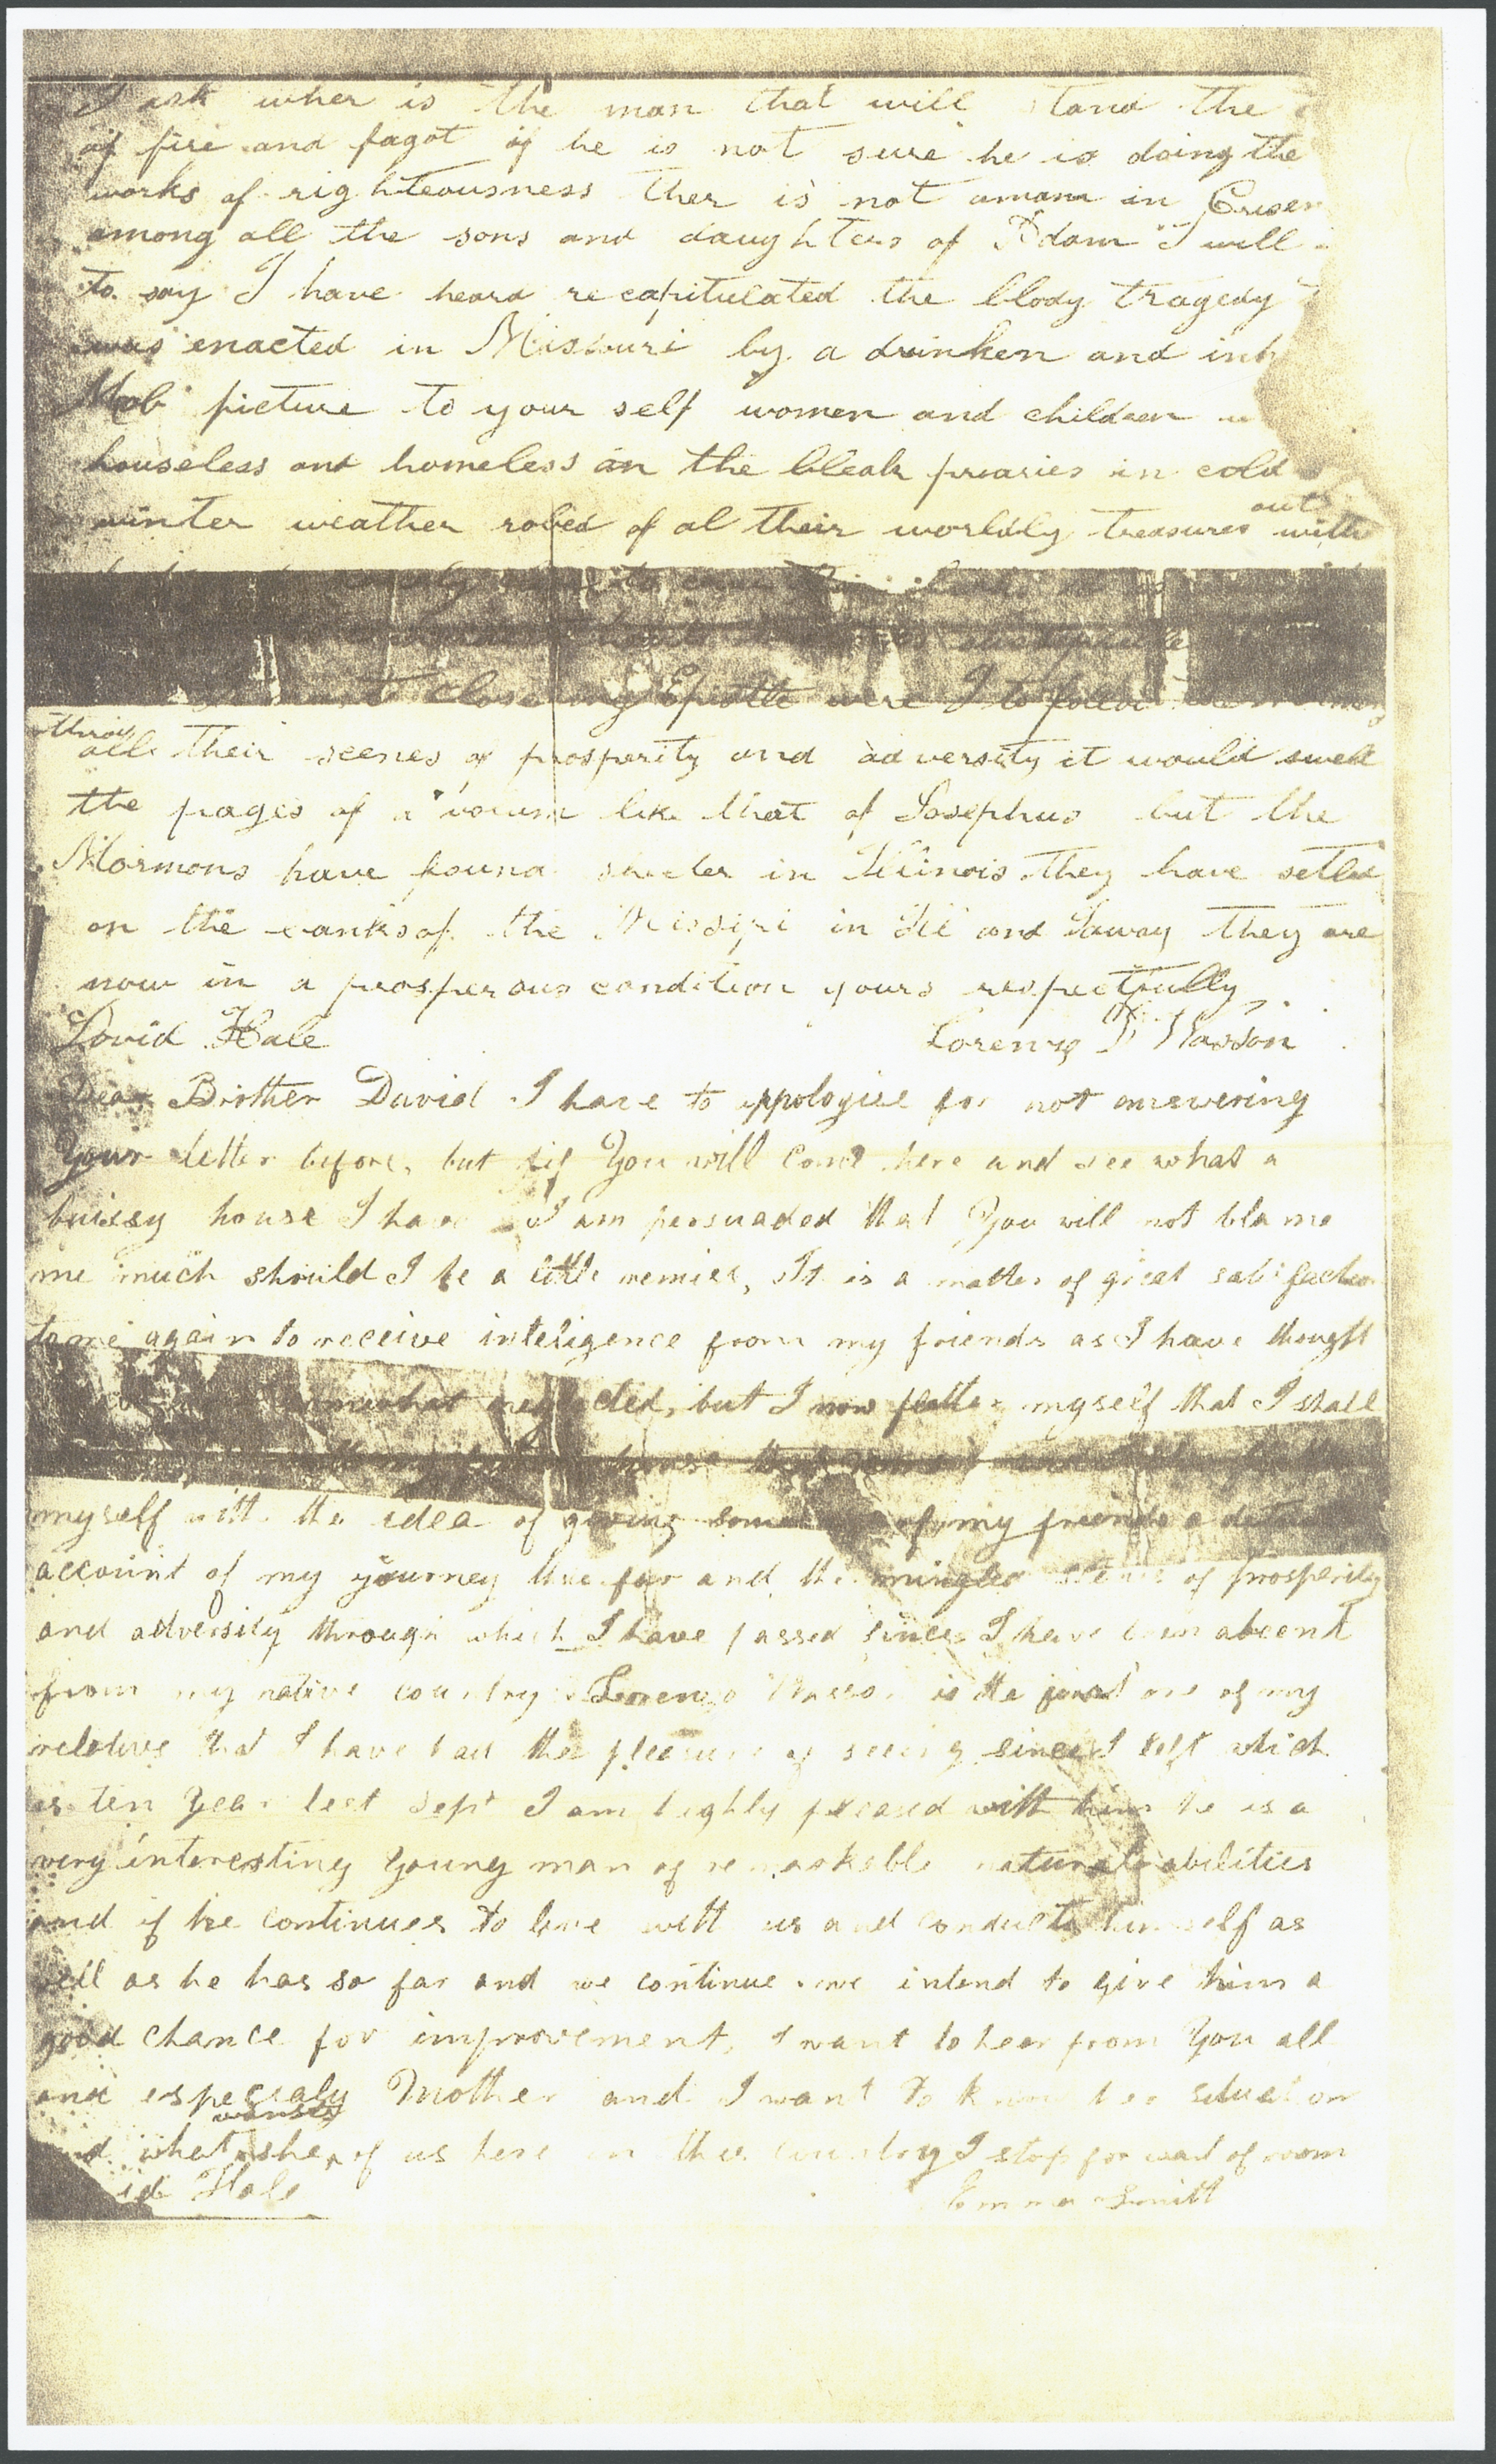 I ask wher is the man that will stand the
of fire and fagot if he is not sure he is doing the
works of righteousness ther is not a man in
among all the sons and daughters of Adam I will
to say I have heard recapitulated the blody tragedy
was enacted in Missouri by a drunken and inh
Mob picture to your self women and children
houseless and homeless on the bleak praries in cold
winter weather robed of al their worldly treasures out with
must close my Epistle were I to follow
throu all their scenes of prosperity and adversity it would swell
the pages of a volum like that of Josephus but the
Mormons have found shelter in Illinois they have settled
on the banks of the Missippi in Ill and Iaway they are
now in a prosperous condition yours respectfully
David Hale Lorenzo D Wasson
Dear Brother David I have to appologise for not answering
Your letter before, but if You will come here and see what a
buissy house I have I am persuaded that You will not blame
me much should I be a little remiss, It is a matter of great satisfaction
to me again to receive inteligence from my friends as I have thought
somewhat neglected, but I now flatter myself that I shall
myself with the idea of giving some of my friends a
account of my yourney thus far and the mingled scenes of prosperity
and adversity through which I have passed since I have been abcent
from my native country Lorenzo Wasson is the first one of my
relatives that I have had the pleasure of seeing since I left which
is ten Year last Sept I am highly pleased with him he is a
very interesting young man of remarkable natural abilities
and if he continues to live with us and conducts himself as
well as he has so far and we continue we intend to give him a
good chance for improvement, I want to hear from You all
and especialy Mother and I want to know her situation
and what she wants of us here in this country I stop for want of room
id Hale Emma Smith